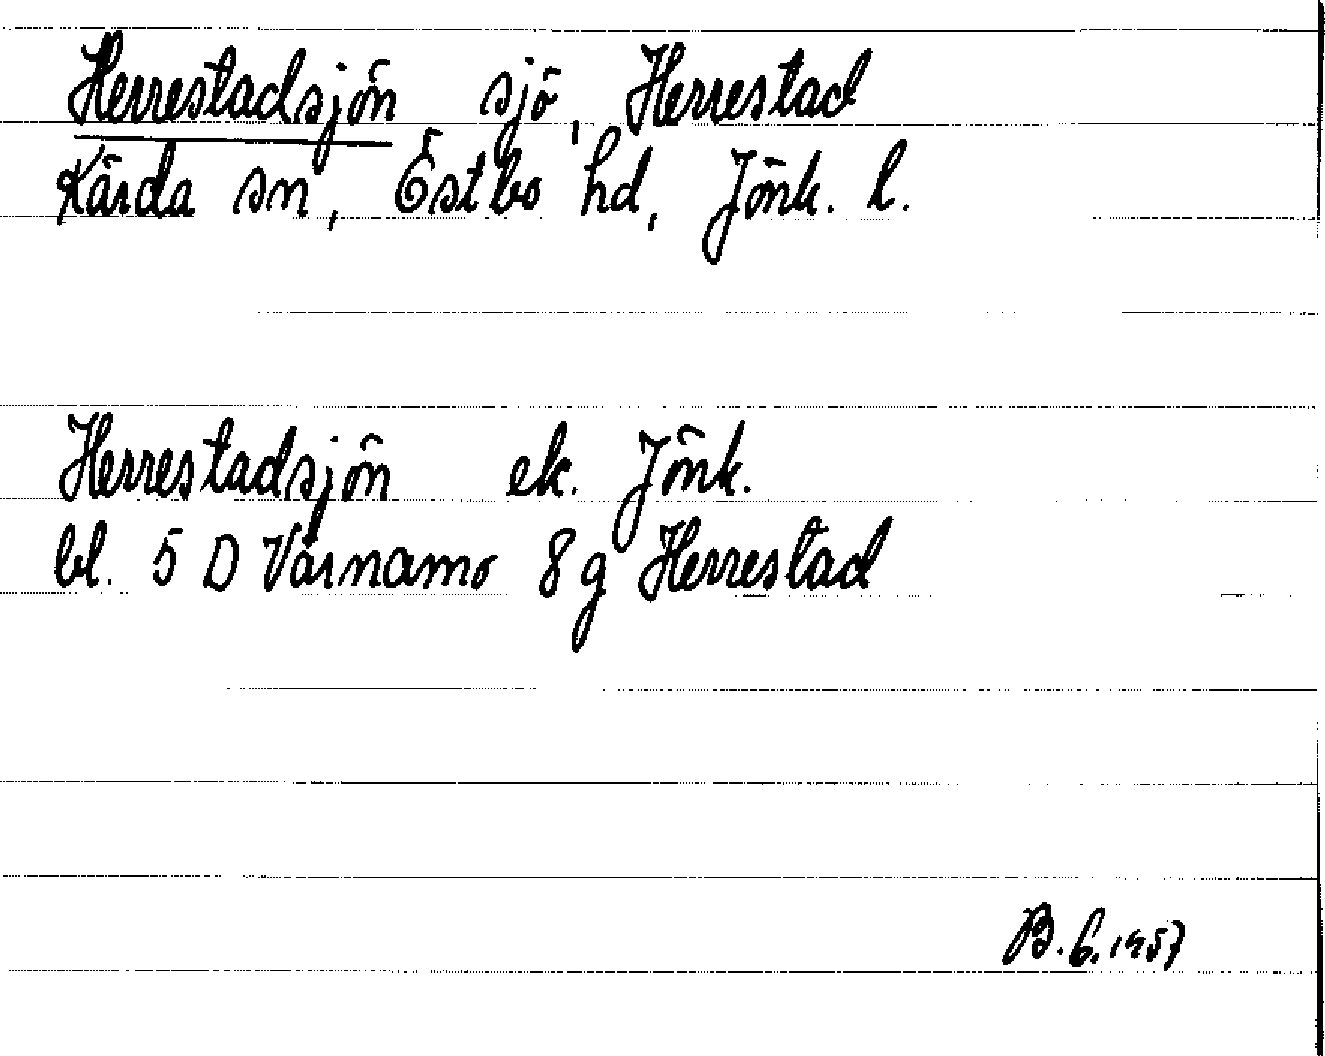 Herrestadsjön sjö, Herrestad
Kärda sn, Östbo hd, Jönk. l.
Herrestadsjön ek. Jönk.
bl. 5 D Värnamo 8 g Herrestad
B.G. 1957